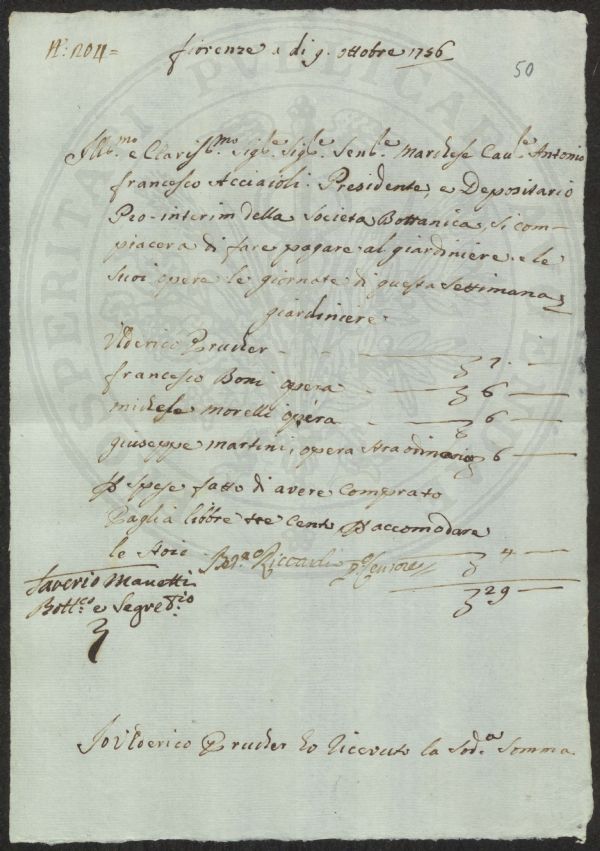 N.° 204 =
fiorenze a di 9. ottobre 1756
50
Ill.mo e Clariss.mo Sig.le Sig.le Sen.le Marchese Cau.le Antonio
francesco Acciaioli. Presidente, e Depositario
Pro-interim della Societa Bottanica, si com-
piacera di fare pagare al giardiniere e le
suoi opere le giornate di questa settimana
giardiniere
Ulderico Prucher - - - 7. -
francesco Boni opera - - 6 -
michele morelli opera - 6 -
giuseppe martini, opera straordinario 6 -
P spese fatto di avere comprato
Paglia libbre tre cento P accomodare
le stoie - - 4 -
Riccardi
Saverio Manetti
Bott.co e Segret.io
29 -
Io Ulderico Prucher ho riceuuto la Sod.a Somma